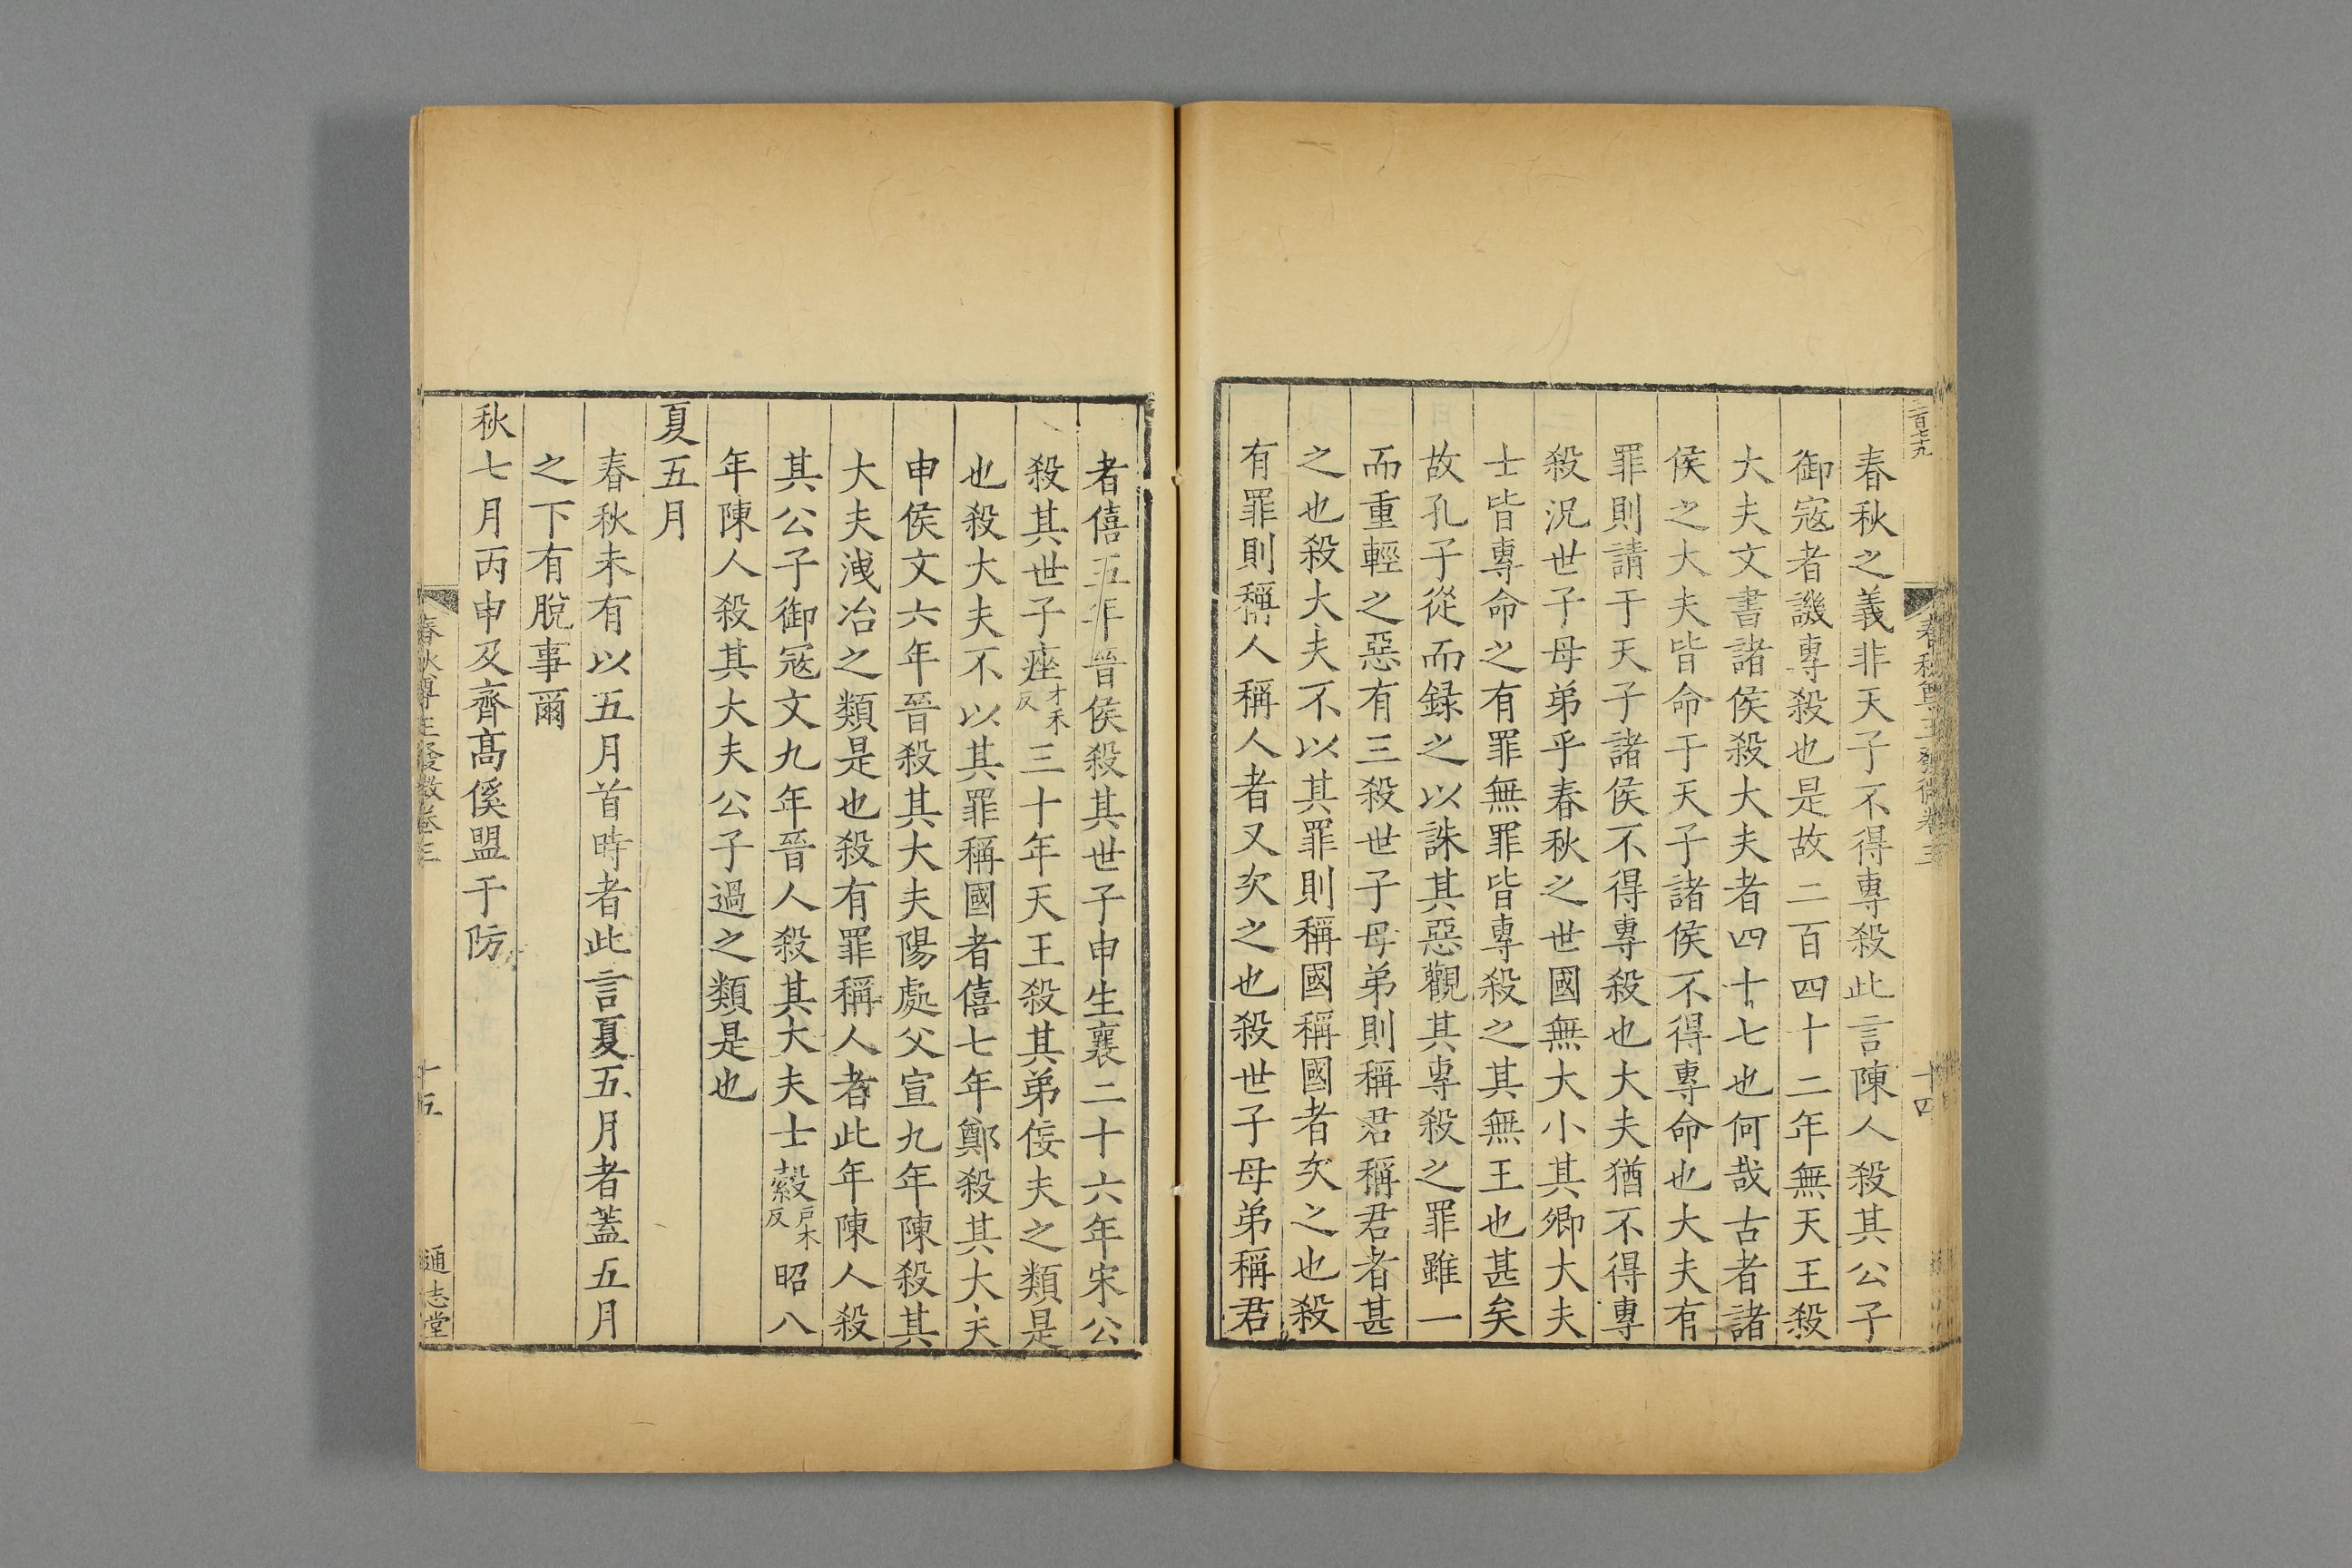 春秋之義非天子不得專殺此言陳人殺其公子
御寇者譏專殺也是故二百四十二年無天王殺
大夫文書諸侯殺大夫者四十七也何哉古者諸
侯之大夫皆命于天子諸侯不得專命也大夫有
罪則請于天子諸侯不得專殺也大夫猶不得專
殺況世子母弟乎春秋之世國無大小其卿大夫
士皆專命之有罪無罪皆專殺之其無王也甚矣
故孔子從而録之以誅其惡觀其專殺之罪雖一
而重輕之惡有三殺世子母弟則稱君稱君者甚
之也殺大夫不以其罪則稱國稱國者次之也殺
有罪則稱人稱人者又次之也殺世子母弟稱君
者僖五年晉侯殺其世子申生襄二十六年宋公
殺其世子痤才禾反三十年天王殺其弟佞夫之類是
也殺大夫不以其罪稱國者僖七年鄭殺其大夫
申侯文六年晉殺其大夫陽處父宣九年陳殺其
大夫洩冶之類是也殺有罪稱人者此年陳人殺
其公子御寇文九年晉人殺其大夫士縠戶木反昭八
年陳人殺其大夫公子過之類是也
夏五月
春秋未有以五月首時者此言夏五月者蓋五月
之下有脫事爾
秋七月丙申及齊高傒盟于防
春秋尊王發微卷三
十五
通志堂